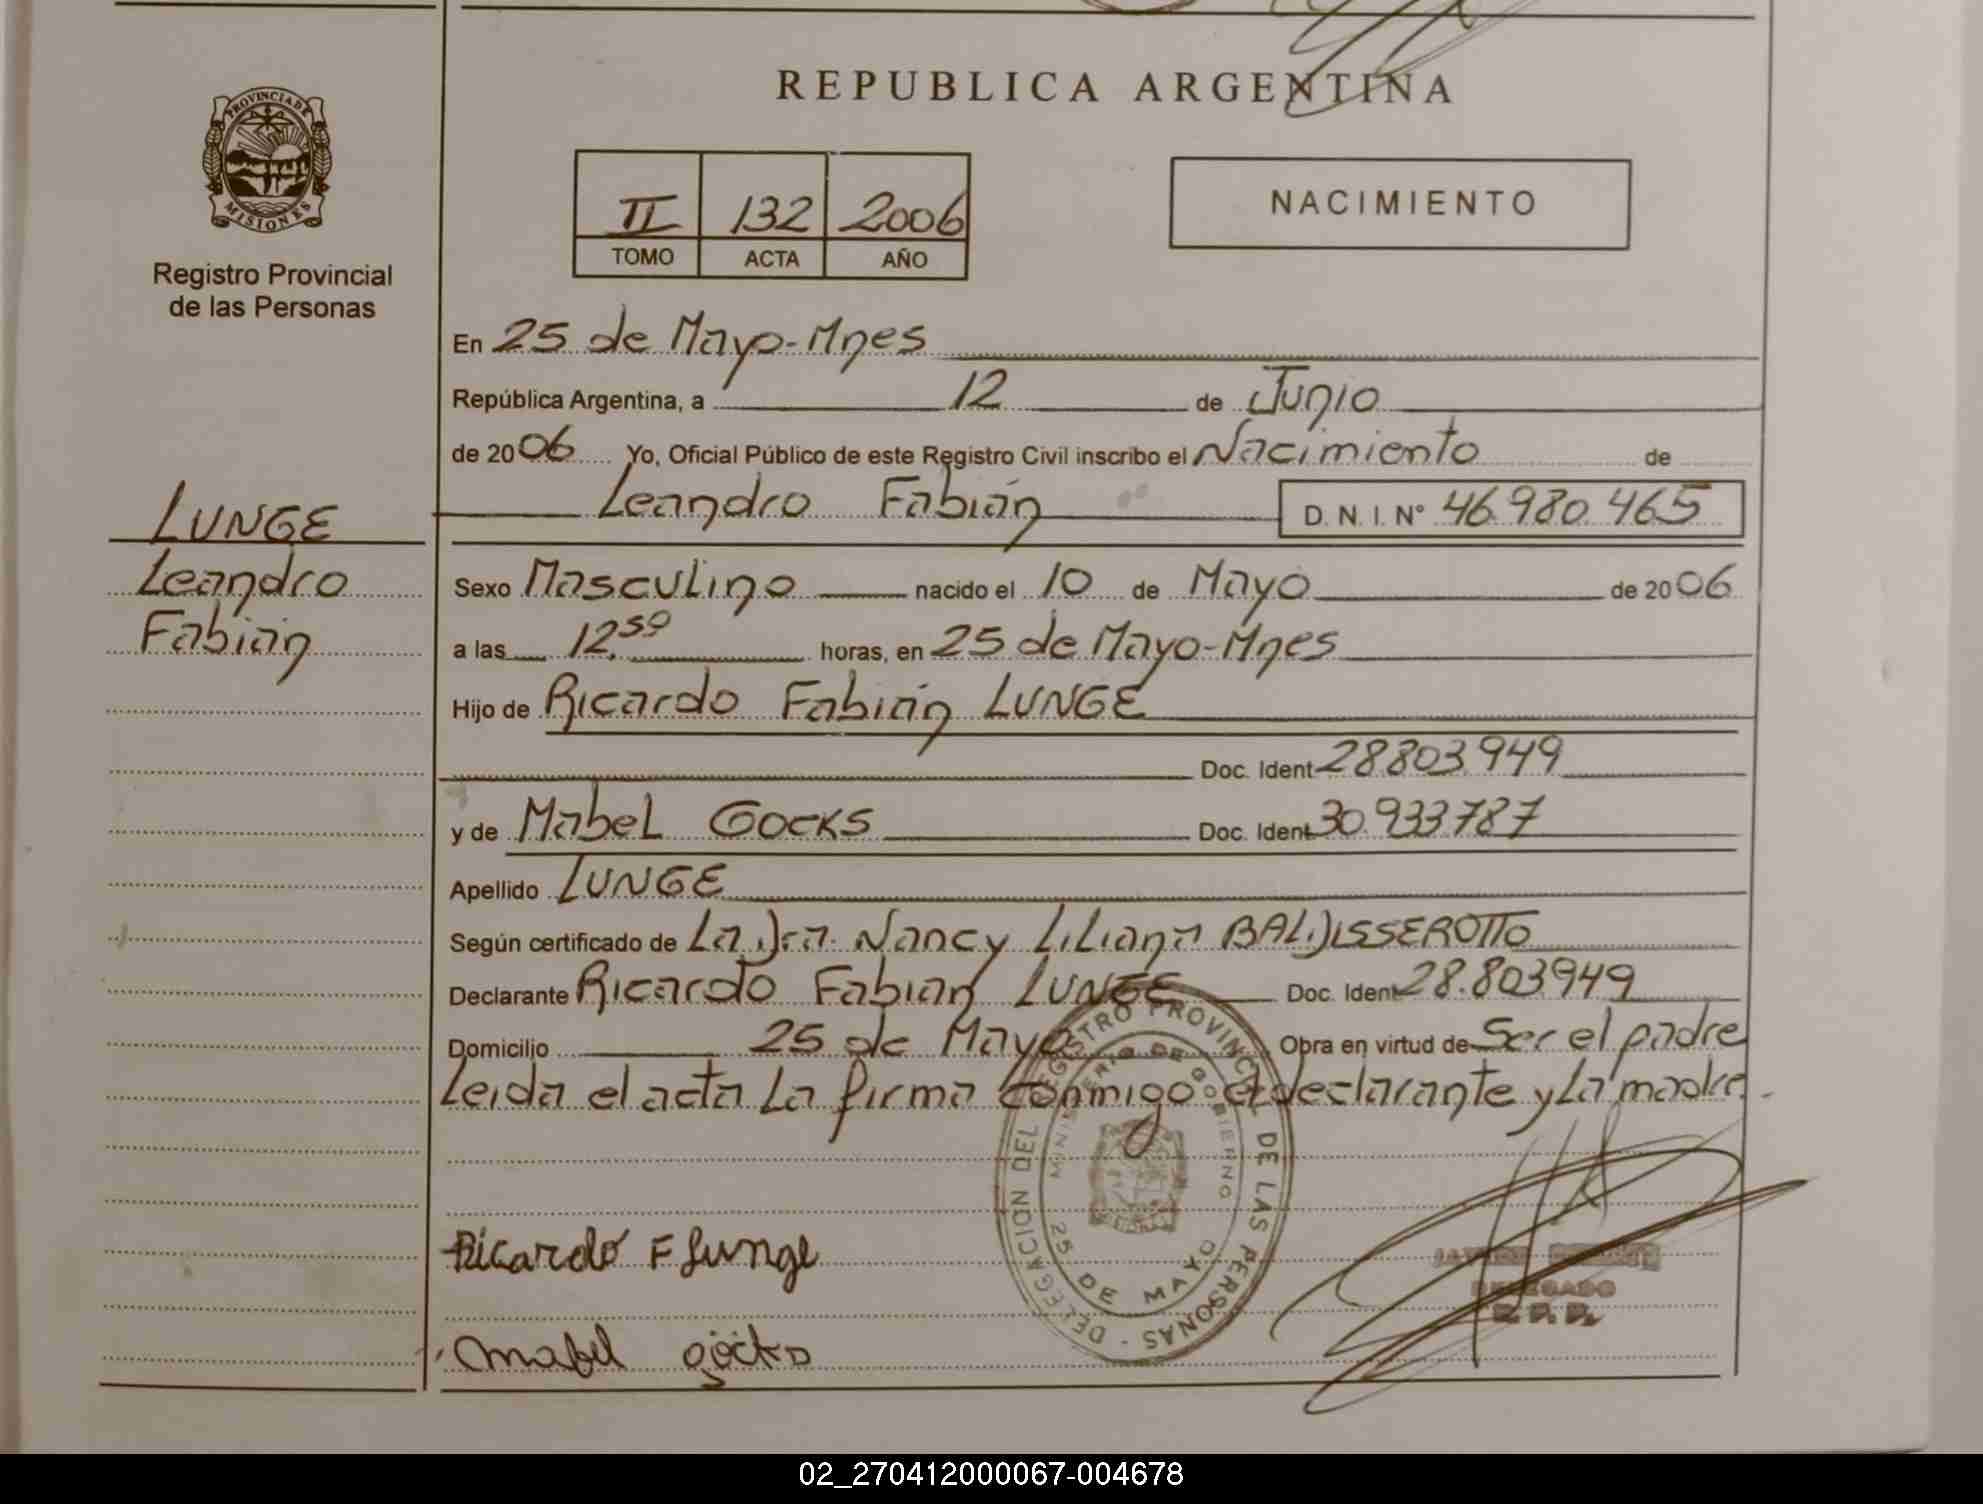 PROVINCIA DE
MISIONES
Registro Provincial
de las Personas
LUNGE
Leandro
Fabián
REPUBLICA ARGENTINA
II 132 2006
TOMO ACTA AÑO
NACIMIENTO
En 25 de Mayo-Mnes
República Argentina, a 12 de Junio
de 2006 Yo, Oficial Público de este Registro Civil inscribo el Nacimiento de
Leandro Fabián D. N. I. N° 46.980.465
Sexo Masculino nacido el 10 de Mayo de 2006
a las 12,50 horas, en 25 de Mayo-Mnes
Hijo de Ricardo Fabián LUNGE
Doc. Ident 28.803.949
y de Mabel GOCKS Doc. Ident 30.933.787
Apellido LUNGE
Según certificado de La Dra. Nancy Liliana BALDISSEROTTO
Declarante Ricardo Fabián LUNGE Doc. Ident 28.803.949
Domicilio 25 de Mayo Obra en virtud de Ser el padre
Leida el acta La firma Conmigo el declarante y La madre.
DELEGACION DEL REGISTRO PROVINCIAL DE LAS PERSONAS -
MINISTERIO DE GOBIERNO
25 DE MAYO
Ricardo F Lunge
DELEGADO
R. P. P.
Mabel göcks
02_270412000067-004678